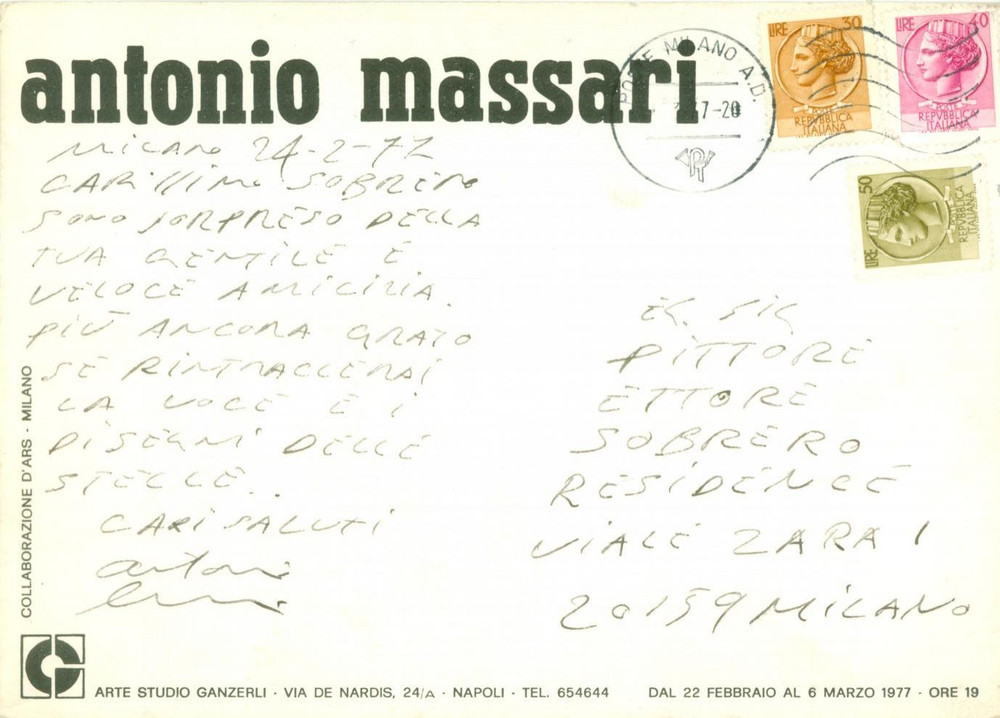 antonio massari
POSTE MILANO A.D.
LIRE 30
POSTE
REPVBBLICA
ITALIANA
LIRE 40
POSTE
REPVBBLICA
ITALIANA
LIRE 50
POSTE
REPVBBLICA
ITALIANA
MILANO 24-2-77
CARISSIMO SOBRERO
SONO SORPRESO DELLA
TUA GENTILE E
VELOCE AMICIZIA.
PIÙ ANCORA GRATO
SE RINTRACCERAI
LA VOCE E I
DISEGNI DELLE
STELLE..
CARI SALUTI
antonio
EG. SIG.
PITTORE
ETTORE
SOBRERO
RESIDENCE
VIALE ZARA 1
20159 MILANO
COLLABORAZIONE D'ARS - MILANO
ARTE STUDIO GANZERLI · VIA DE NARDIS, 24/A · NAPOLI · TEL. 654644 DAL 22 FEBBRAIO AL 6 MARZO 1977 · ORE 19